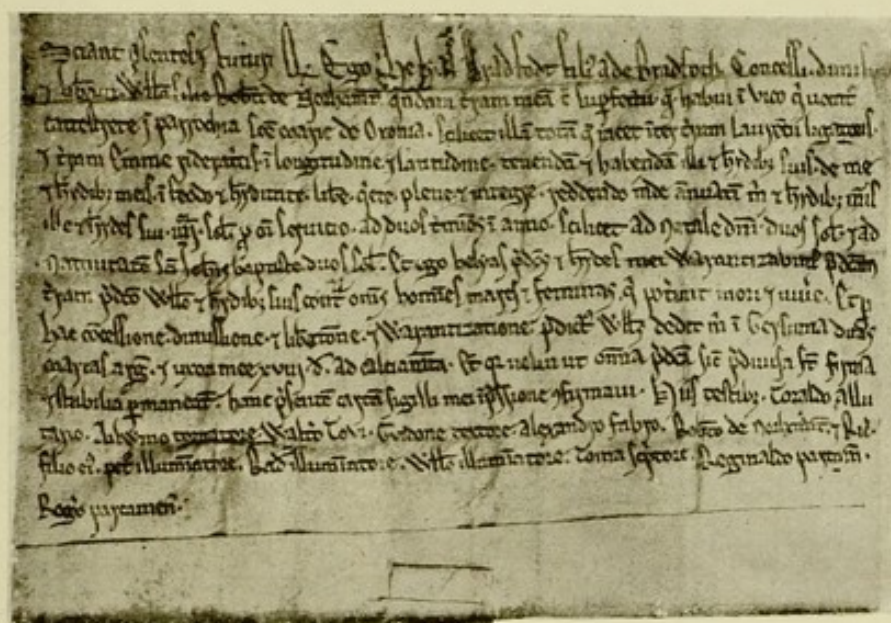 Sciant p̄sentes ⁊ futuri q̄ Ego helẏ Bradfodt fili' ade Bradfoth Concessi. dimisi
⁊ lib̄aui Will̄o filio Rob̄ti de t̄ram meā c̄ sup̄ p̄tin̄ q̄ habui ī vico q̄ uocat̄
Cattestrete ī parrochia Sc̄e marie de Oxonia. Scilicet illā totam q̄ iacet īt̄ t̄ram Laurentii
⁊ t̄ram ī longitudine ⁊ latitudine. tenendā ⁊ habendā illi ⁊ h̄edib; suis. de me
⁊ h̄edib; meis. ī feodo ⁊ h̄editate. lib̄e. q̄ete. plene ⁊ integre. reddendo īde ānuatī m̄ ⁊ h̄edib; meis
ille ⁊ h̄edes sui. iiii. sol̄. p̄ om̄i seruicio. ad duos t̄minos ī anno. scilicet ad Natale dn̄i. duos sol̄. ⁊ ad
Natiuitatē Sc̄i Ioh̄is baptiste duos sol̄. Et ego helyas p̄dc̄s ⁊ h̄edes mei Warantizabim̄ p̄dc̄am
t̄ram p̄dc̄o Will̄o ⁊ h̄edib; suis cont̄ om̄es homines ⁊ feminas. q̄ pot̄int mori ⁊ uiūe. Et p̄
hac c̄cessione. dimissione. ⁊ lib̄atione. ⁊ Warantizatione. p̄dict̄ Will̄s dedit m̄ ī Gersuma duas
marcas arḡ. ⁊ uxori mee xviii. d̄. ad calciam̄ta. Et q̄ uelim ut om̄ia p̄dc̄a sic̄ p̄diuisa s̄t firma
⁊ stabilia p̄maneant. hanc p̄sentē cartā sigilli mei īp̄ssione ɔfirmaui. Hiis testib;. Toraldo Allu
tario. Ailwino Walt̄o Guidone textore. Alexandro fabro. Rob̄to de ⁊ Ric̄
filio ei'. Pet̄ illuminatore. Rad̄ illuminatore. Will̄o illuminatore. Toma sc̄ptore. Reginaldo parcam̄.
Roḡo parcamen̄.